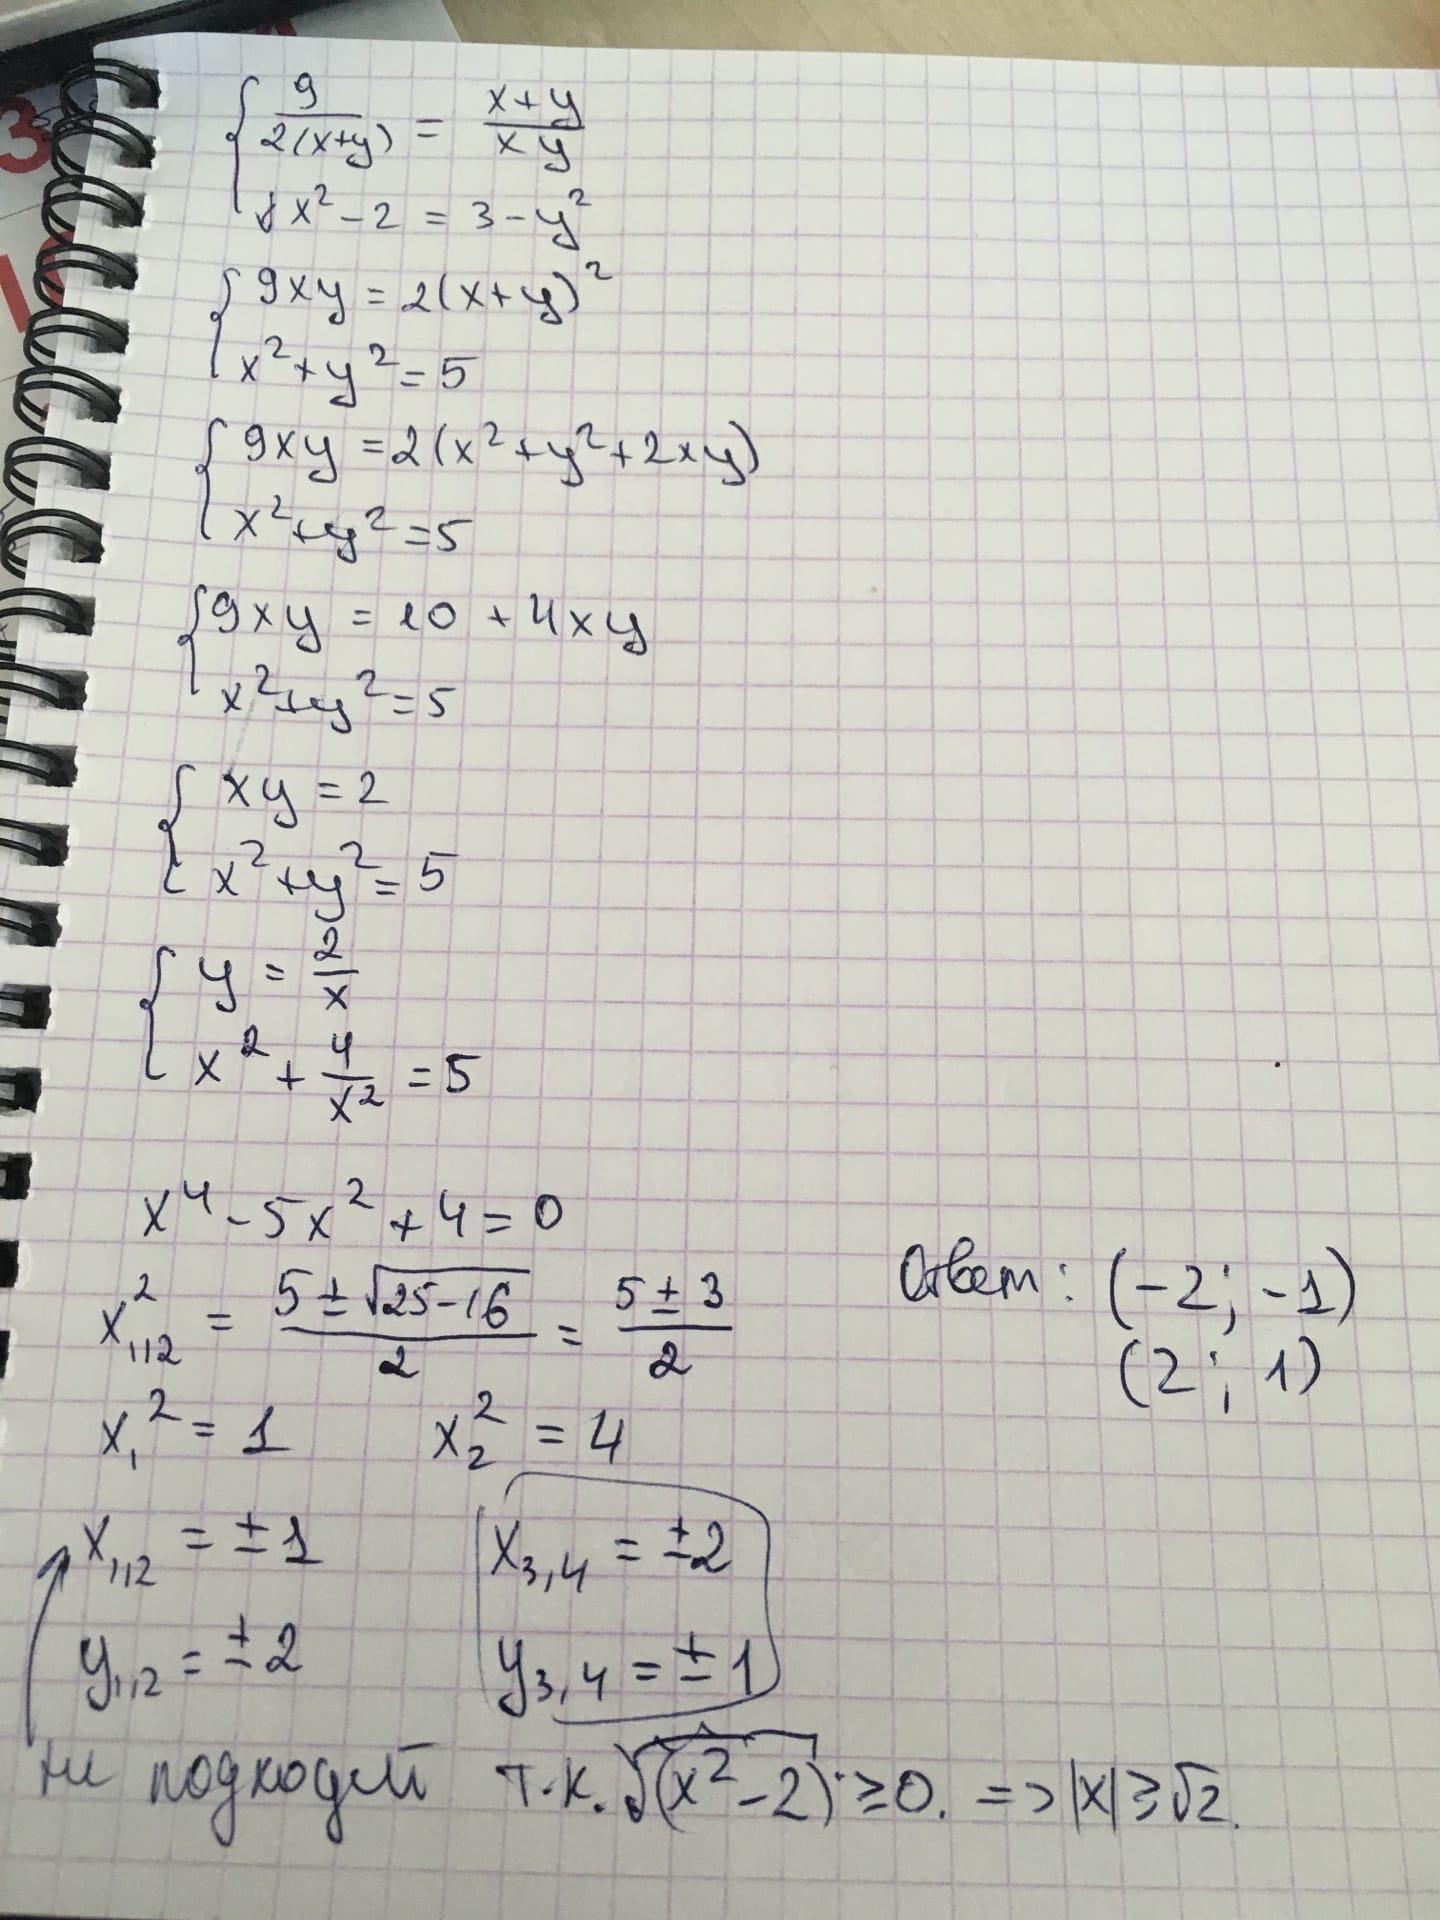 9/(2(x+y)) = (x+y)/(xy)
x² - 2 = 3 - y²
9xy = 2(x+y)²
x² + y² = 5
9xy = 2(x² + y² + 2xy)
x² + y² = 5
9xy = 10 + 4xy
x² + y² = 5
xy = 2
x² + y² = 5
y = 2/x
x² + 4/x² = 5
x⁴ - 5x² + 4 = 0
x²₁,₂ = (5 ± √(25-16))/2 = (5 ± 3)/2
Ответ: (-2; -1)
(2; 1)
x₁² = 1 x₂² = 4
x₁,₂ = ±1 x₃,₄ = ±2
y₁,₂ = ±2 y₃,₄ = ±1
не подходит т.к. √(x² - 2) ≥ 0. => |x| ≥ √2.